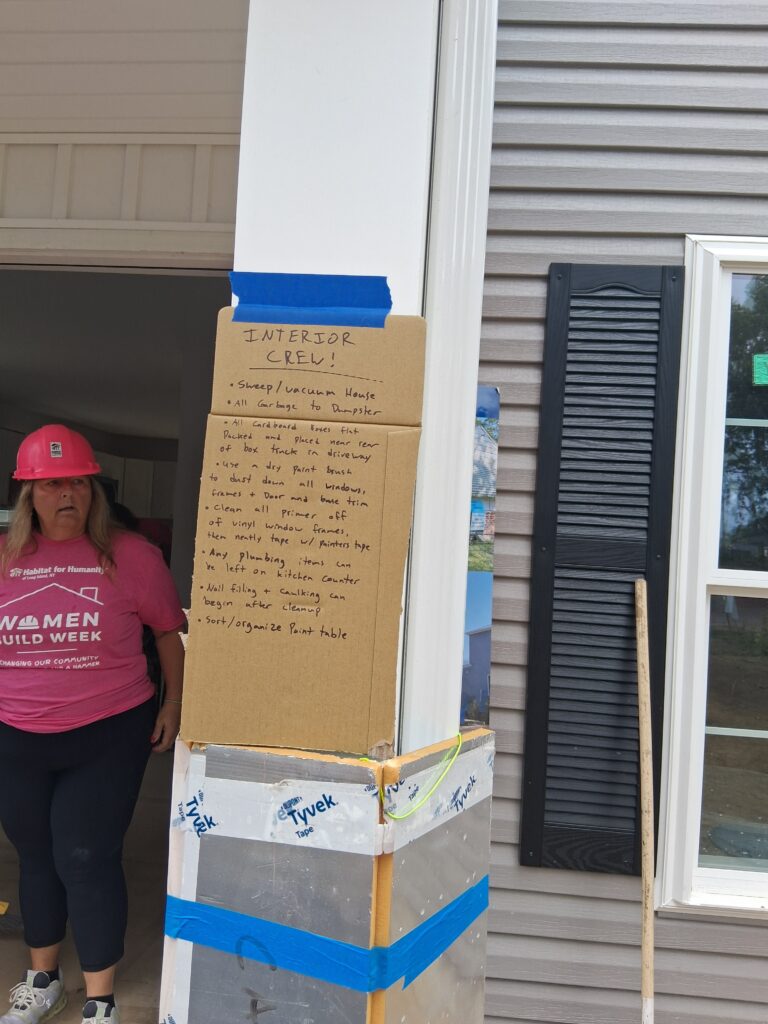 INTERIOR
CREW!
• Sweep/vacuum House
• All Garbage to Dumpster
• All Cardboard Boxes flat
Packed and placed near rear
of box truck in driveway
• Use a dry paint brush
to dust down all windows,
frames + Door and base trim
• Clean all primer off
of vinyl window frames,
then neatly tape w/ painters tape
• Any plumbing items can
be left on kitchen counter
• Nail filling + caulking can
begin after cleanup
• Sort/organize Paint table
Habitat for Humanity
of Long Island, NY
WOMEN
BUILD WEEK
CHANGING OUR COMMUNITY
A HAMMER
DUPONT
Tyvek
Tape
Tyvek
Tyvek